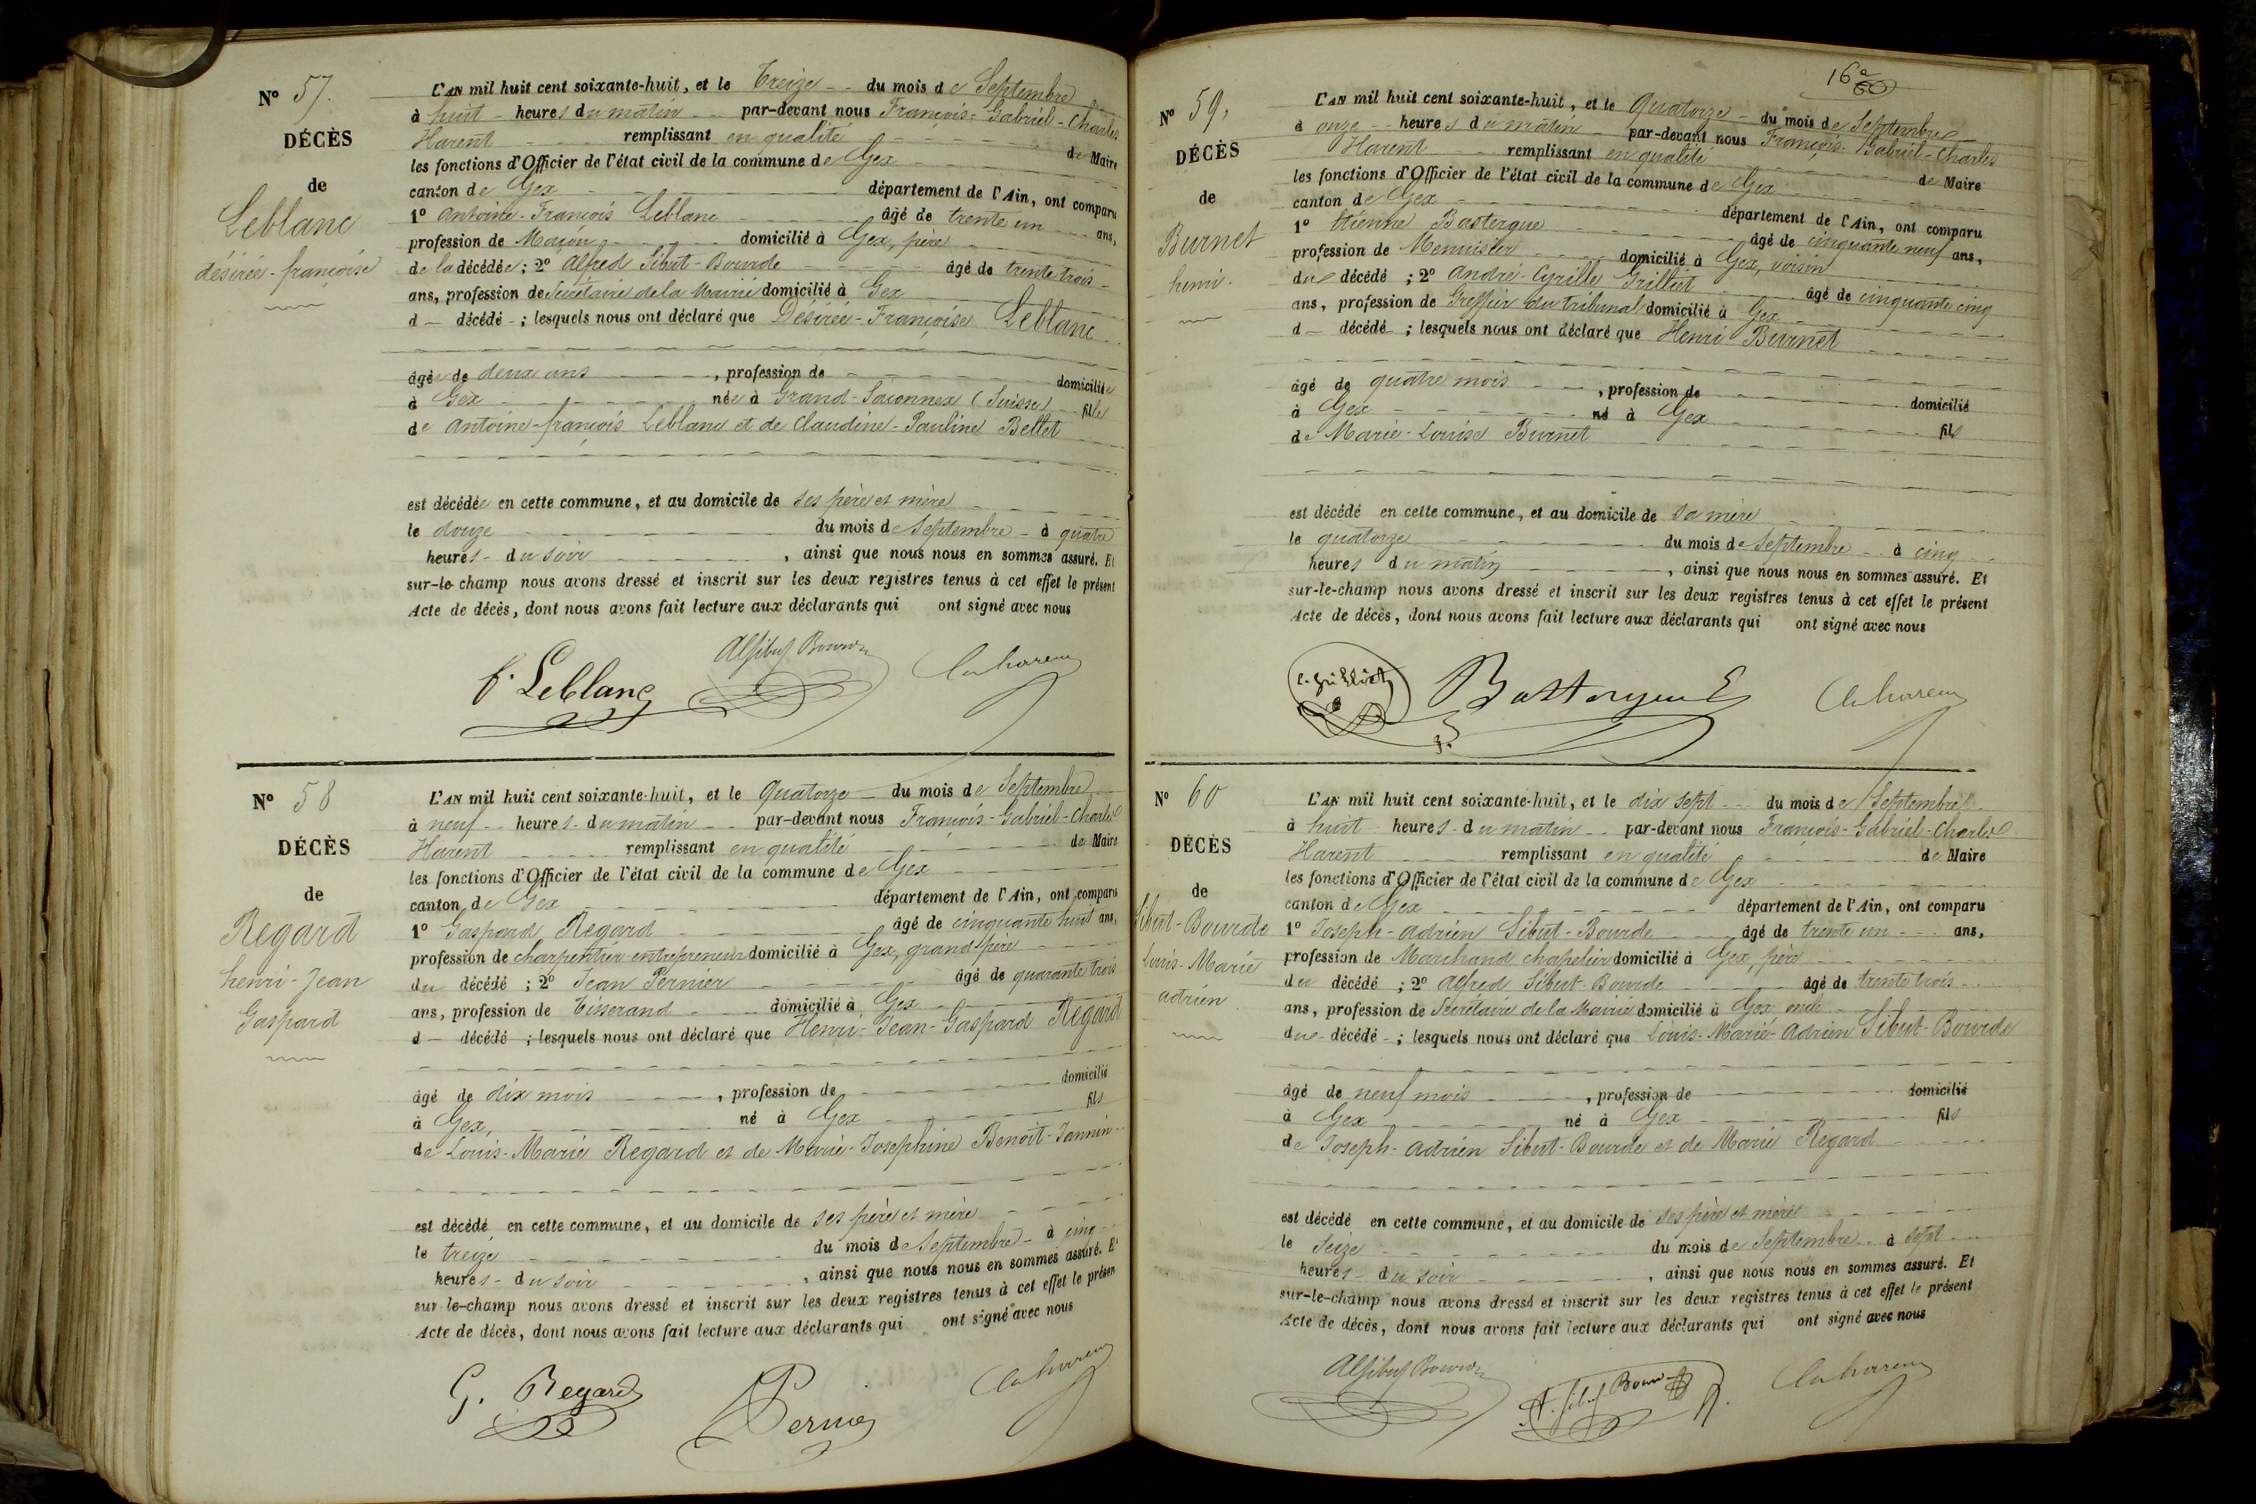 N° 57.
DÉCÈS
de
Leblanc
désirée-françoise
L'AN mil huit cent soixante-huit, et le Treize du mois de Septembre
à huit heures du matin par-devant nous François-Gabriel-Charles
Harent remplissant en qualité de Maire
les fonctions d'Officier de l'état civil de la commune de Gex
canton de Gex département de l'Ain, ont comparu
1° Antoine-François Leblanc âgé de trente un ans,
profession de Maçon domicilié à Gex, père
de la décédée ; 2° Alfred Sibut-Bourde âgé de trente trois
ans, profession de Secrétaire de la Mairie domicilié à Gex
d décédé ; lesquels nous ont déclaré que Désirée-Françoise Leblanc
âgée de deux ans , profession de domiciliée
à Gex née à Grand-Saconnex (Suisse) fille
de Antoine-françois Leblanc et de Claudine-Pauline Bellet
est décédée en cette commune, et au domicile de ses père et mère
le douze du mois de Septembre à quatre
heures du soir , ainsi que nous nous en sommes assuré. Et
sur-le-champ nous avons dressé et inscrit sur les deux registres tenus à cet effet le présent
Acte de décès, dont nous avons fait lecture aux déclarants qui ont signé avec nous
f. Leblanc Alf Sibut Bourde Ch harent
N° 58
DÉCÈS
de
Regard
henri-Jean
Gaspard
L'AN mil huit cent soixante-huit, et le Quatorze du mois de Septembre
à neuf heures du matin par-devant nous François-Gabriel-Charles
Harent remplissant en qualité de Maire
les fonctions d'Officier de l'état civil de la commune de Gex
canton de Gex département de l'Ain, ont comparu
1° Gaspard Regard âgé de cinquante huit ans,
profession de charpentier-entrepreneur domicilié à Gex, grand père
du décédé ; 2° Jean Pernier âgé de quarante trois
ans, profession de Tisserand domicilié à Gex
d décédé ; lesquels nous ont déclaré que Henri-Jean-Gaspard Regard
âgé de dix mois , profession de domicilié
à Gex, né à Gex fils
de Louis-Marie Regard et de Marie-Josephine Benoit-Jannin
est décédé en cette commune, et au domicile de ses père et mère
le treize du mois de Septembre à cinq
heures du soir , ainsi que nous nous en sommes assuré. Et
sur-le-champ nous avons dressé et inscrit sur les deux registres tenus à cet effet le présent
Acte de décès, dont nous avons fait lecture aux déclarants qui ont signé avec nous
G. Regard Pernier Ch harent
16e
60
N° 59,
DÉCÈS
de
Burnet
henri.
L'AN mil huit cent soixante-huit, et le Quatorze du mois de Septembre
à onze heures du matin par-devant nous François-Gabriel-Charles
Harent remplissant en qualité de Maire
les fonctions d'Officier de l'état civil de la commune de Gex
canton de Gex département de l'Ain, ont comparu
1° Etienne Bastergue âgé de cinquante neuf ans,
profession de Menuisier domicilié à Gex, voisin
du décédé ; 2° André-Cyrille Grilliet âgé de cinquante cinq
ans, profession de Greffier du tribunal domicilié à Gex
d décédé ; lesquels nous ont déclaré que Henri Burnet
âgé de quatre mois , profession de domicilié
à Gex né à Gex fils
de Marie-Louise Burnet
est décédé en cette commune, et au domicile de sa mère
le quatorze du mois de Septembre à cinq
heures du matin , ainsi que nous nous en sommes assuré. Et
sur-le-champ nous avons dressé et inscrit sur les deux registres tenus à cet effet le présent
Acte de décès, dont nous avons fait lecture aux déclarants qui ont signé avec nous
C. Grilliet Bastergue E Ch harent
N° 60
DÉCÈS
de
Sibut-Bourde
Louis-Marie
adrien
L'AN mil huit cent soixante-huit, et le dix sept du mois de Septembre
à huit heures du matin par-devant nous François-Gabriel-Charles
Harent remplissant en qualité de Maire
les fonctions d'Officier de l'état civil de la commune de Gex
canton de Gex département de l'Ain, ont comparu
1° Joseph-Adrien Sibut-Bourde âgé de trente un ans,
profession de Marchand chapelier domicilié à Gex, père
du décédé ; 2° Alfred Sibut-Bourde âgé de trente trois
ans, profession de Secrétaire de la Mairie domicilié à Gex, oncle
du décédé ; lesquels nous ont déclaré que Louis-Marie-Adrien Sibut-Bourde
âgé de neuf mois , profession de domicilié
à Gex né à Gex fils
de Joseph-Adrien Sibut-Bourde et de Marie Regard
est décédé en cette commune, et au domicile de ses père et mère
le Seize du mois de Septembre à sept
heures du soir , ainsi que nous nous en sommes assuré. Et
sur-le-champ nous avons dressé et inscrit sur les deux registres tenus à cet effet le présent
Acte de décès, dont nous avons fait lecture aux déclarants qui ont signé avec nous
Alf Sibut Bourde A. Sibut Bourde Ch harent